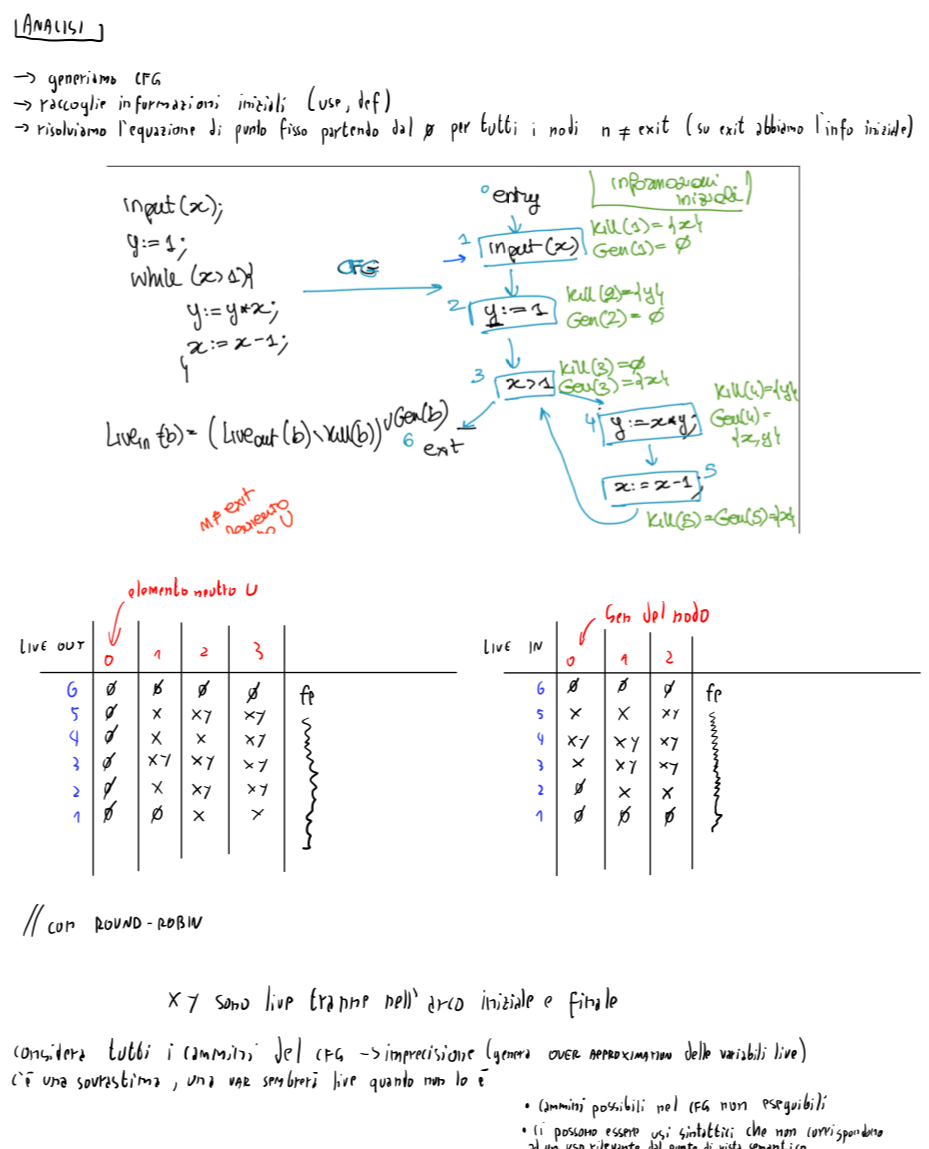 ANALISI
→ generiamo CFG
→ raccoglie informazioni iniziali (use, def)
→ risolviamo l'equazione di punto fisso partendo dal ø per tutti i nodi n ≠ exit (su exit abbiamo l'info iniziale)
input(x);
y:=1;
while (x>1){
y:=y*x;
x:=x-1;
}
CFG
0 entry
informazioni iniziali
1 input(x)
Kill(1)={x}
Gen(1)=ø
2 y:=1
Kill(2)={y}
Gen(2)=ø
3 x>1
Kill(3)=ø
Gen(3)={x}
4 y:=x*y;
Kill(4)={y}
Gen(4)={x,y}
5 x:=x-1;
Kill(5)=Gen(5)={x}
6 exit
Livein(b)=(Liveout(b)\Kill(b))∪Gen(b)
n≠exit
U
elemento neutro U
LIVE OUT 0 1 2 3
6 ø ø ø ø fp
5 ø x xy xy
4 ø x x xy
3 ø xy xy xy
2 ø x xy xy
1 ø ø x x
Gen del nodo
LIVE IN 0 1 2
6 ø ø ø fp
5 x x xy
4 xy xy xy
3 x xy xy
2 ø x x
1 ø ø ø
// con ROUND-ROBIN
x y sono live tranne nell'arco iniziale e finale
considera tutti i cammini del CFG -> imprecisione (genera OVER APPROXIMATION delle variabili live)
c'è una sovrastima, una VAR sembrerà live quando non lo è
• cammini possibili nel CFG non eseguibili
• ci possono essere usi sintattici che non corrispondono
ad un uso rilevante dal punto di vista semantico